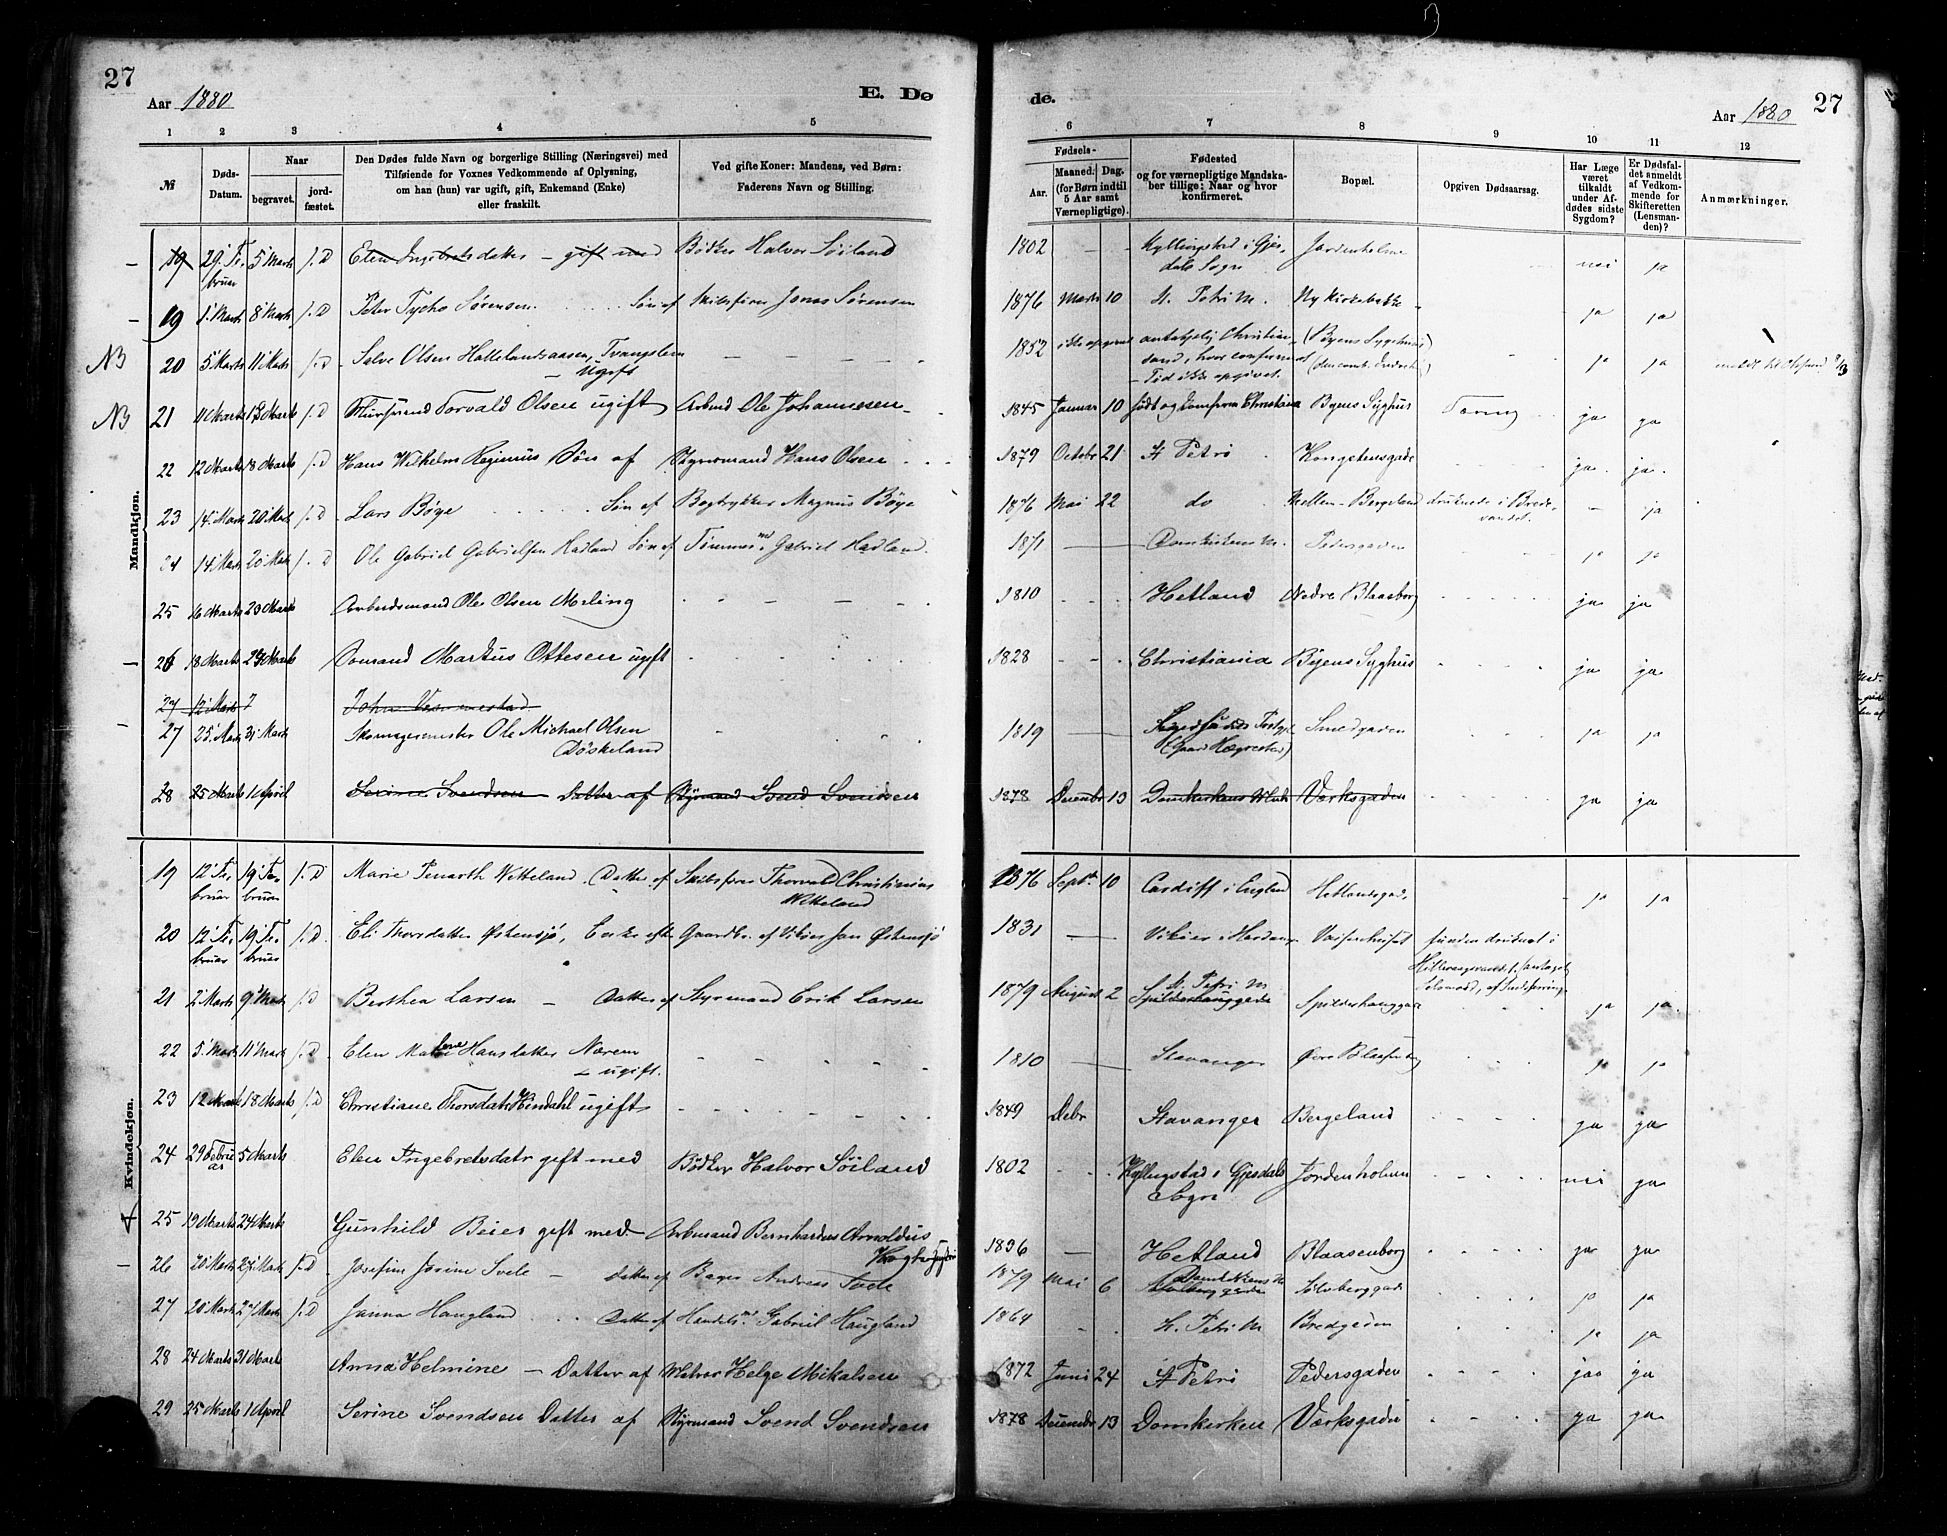 27
Aar 1880
E. Dø
de.
Aar 1880
27
1 2 3 4 5
6 7 8 9 10 11 12
№
Døds-Datum.
Naar
begravet.
jord-fæstet.
Den Dødes fulde Navn og borgerlige Stilling (Næringsvei) med
Tilføiende for Voxnes Vedkommende af Oplysning,
om han (hun) var ugift, gift, Enkemand (Enke)
eller fraskilt.
Ved gifte Koner: Mandens, ved Børn:
Faderens Navn og Stilling.
Fødsels-
Aar.
Maaned.
Dag.
(for Børn indtil
5 Aar samt
Værnepligtige).
Fødested
og for værnepligtige Mandska-
ber tillige: Naar og hvor
konfirmeret.
Bopæl.
Opgiven Dødsaarsag.
Har Læge
været
tilkaldt
under Af-
dødes sidste
Sygdom?
Er Dødsfal-
det anmeldt
af Vedkom-
mende for
Skifteretten
(Lensman-
den)?
Anmærkninger.
Mandkjøn.
19 29. Fe- 5 Marts f. D Elen Ingebretsdatter – gift med Bødker Halvor Söiland 1802 – – Kyllingstad i Gjes- Jordenholmen nei ja
bruar dals Sogn
19 1' Marts 8 Marts f. D Peter Tycho Sørensen. Søn af Skibsfører Jonas Sørensen 1876 Marts 10 St. Petri M. Ny Kirkebakke ja ja
NB 20 5' Marts 11' Marts f. D Salve Olsen Hallelandsaasen, Tvangslem – – – 1852 ikke opgivet antagelig Christian- (Byens Sygehus) ja ja meldt til
– Ugift sand, hvor confirmeret
– Tid ikke opgivet.
NB 21 11 Marts 17 Marts f. D Torvald Olsen ugift Arbmd Ole Johannesen 1845 Januar 10 født og Konfirm Christiania Byens Syghus Tæring ja ja
22 12 Marts 18 Marts f. D Hans Wilhelm Reginius Søn af Styrmand Hans Olsen 1879 Octobr 21 St Petri Kongstensgade ja ja
23 14' Marts 20 Marts f. D Lars Böye Søn af Bogtrykker Magnus Böye 1876 Mai 22 do Mellem-Bergeland druknede i Brede- – ja
vandet.
24 14' Marts 20 Marts f. D Ole Gabriel Gabrielsen Hadland Søn af Tømmermd. Gabriel Hadland. 1871 Domkirkens M. Pedersgaden ja ja
25 16 Marts 23 Marts Arbeidsmand Ole Olsen Meling 1810 Hetland Nedre Blaasborg ja ja
26 18 Marts 24 Marts Sömand Markus Ottesen ugift 1828 Christiania Byens Syghus ja ja
27 12' Marts ? John
27 25' Marts 31 Marts Skomagermester Ole Michael Olsen 1819 Smedgaden ja ja
Döskeland (Gaard Hægrestad)
28 25 Marts 1 April Serine Svendsen Datter af Styrmand Svend Svendsen 1878 Decembr 13 Domkirkens Værksgaden ja ja
Kvindekjøn.
19 12' Fe- 19' Fe- f. D Marie Penarth Vetteland. Datter af Skibsfører Thorvald Christinius 1876 Septbr 10 Cardiff i England Hetlandsgad. ja ja
bruar bruar Vetteland
20 12' Fe- 19' Fe- f. D. Eli Thorsdatter Østensjø, Enke efter Gaardbr. af Vikör Jan Østensjø 1831 Vikör i Hardang. Vaisenhuset funden druknet i
bruar bruar Hillevaagsvandet, antagel.
21 2' Marts 9' Marts f. D Berthea Larsen – Datter af Styrmand Erik Larsen 1879 August 2 St. Petri M Spilderhauggade ja ja
Spilderhauggade
22 5' Marts 11' Marts f. D Elen Malene Hansdatter Nærem 1810 Stavanger Øvre Blaasenborg ja ja
– ugift.
23 12 Marts 18 Marts f. D Christiane Thorsdatr Hindahl ugift 1849 Debr Stavanger Bergeland ja ja
24 29 Febru- 5 Marts Elen Ingebretsdatr gift med Bödker Halvor Söiland 1802 Kyllingstad i Gjesdals Jordenholmen nei ja
ar Sogn
25 19 Marts 24 Marts Gunhild Beier gift med Arbmand Bernhardus Arnoldus 1836 Hetland Blaasenborg ja ja
26 20 Marts 27 Marts f. D Josefine Josine Svele – Datter af Bager Andreas 1879 Mai 6 Domkirkens M Sølvberggade ja ja
27 20' Marts 27 Marts f. D Janna Haugland Datter af Handelsmd. Gabriel Haugland 1864 St. Petri M Bredgaden ja ja
28 24 Marts 31 Marts Anna Helmine – Datter af Matros Helge Mikalsen 1872 Juni 24 St Petri Pedersgaden jaa ja
29 25 Marts 1 April Serine Svendsen Datter af Styrmand Svend Svendsen 1878 Decembr 13 Domkirken Værksgaden ja ja